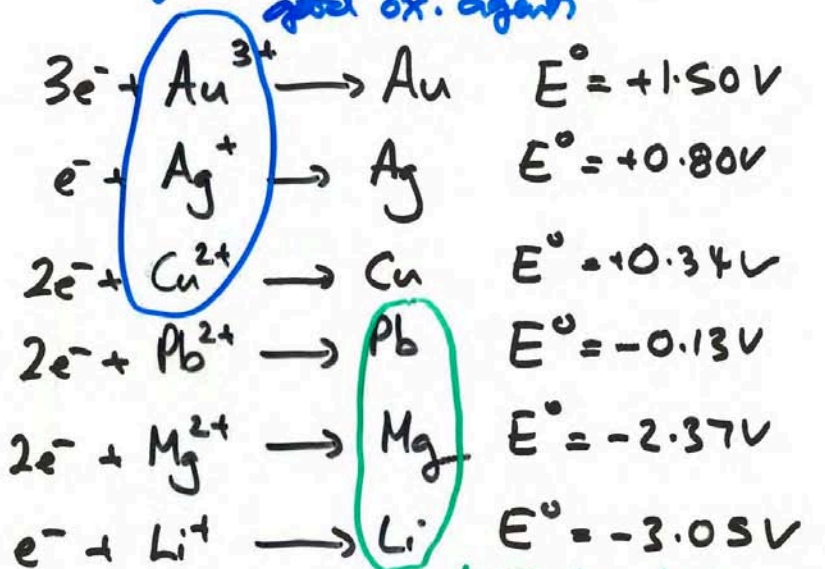 good ox. agents
3e⁻ + Au³⁺ → Au E° = +1.50V
e⁻ + Ag⁺ → Ag E° = +0.80V
2e⁻ + Cu²⁺ → Cu E° = +0.34V
2e⁻ + Pb²⁺ → Pb E° = -0.13V
2e⁻ + Mg²⁺ → Mg E° = -2.37V
e⁻ + Li⁺ → Li E° = -3.05V